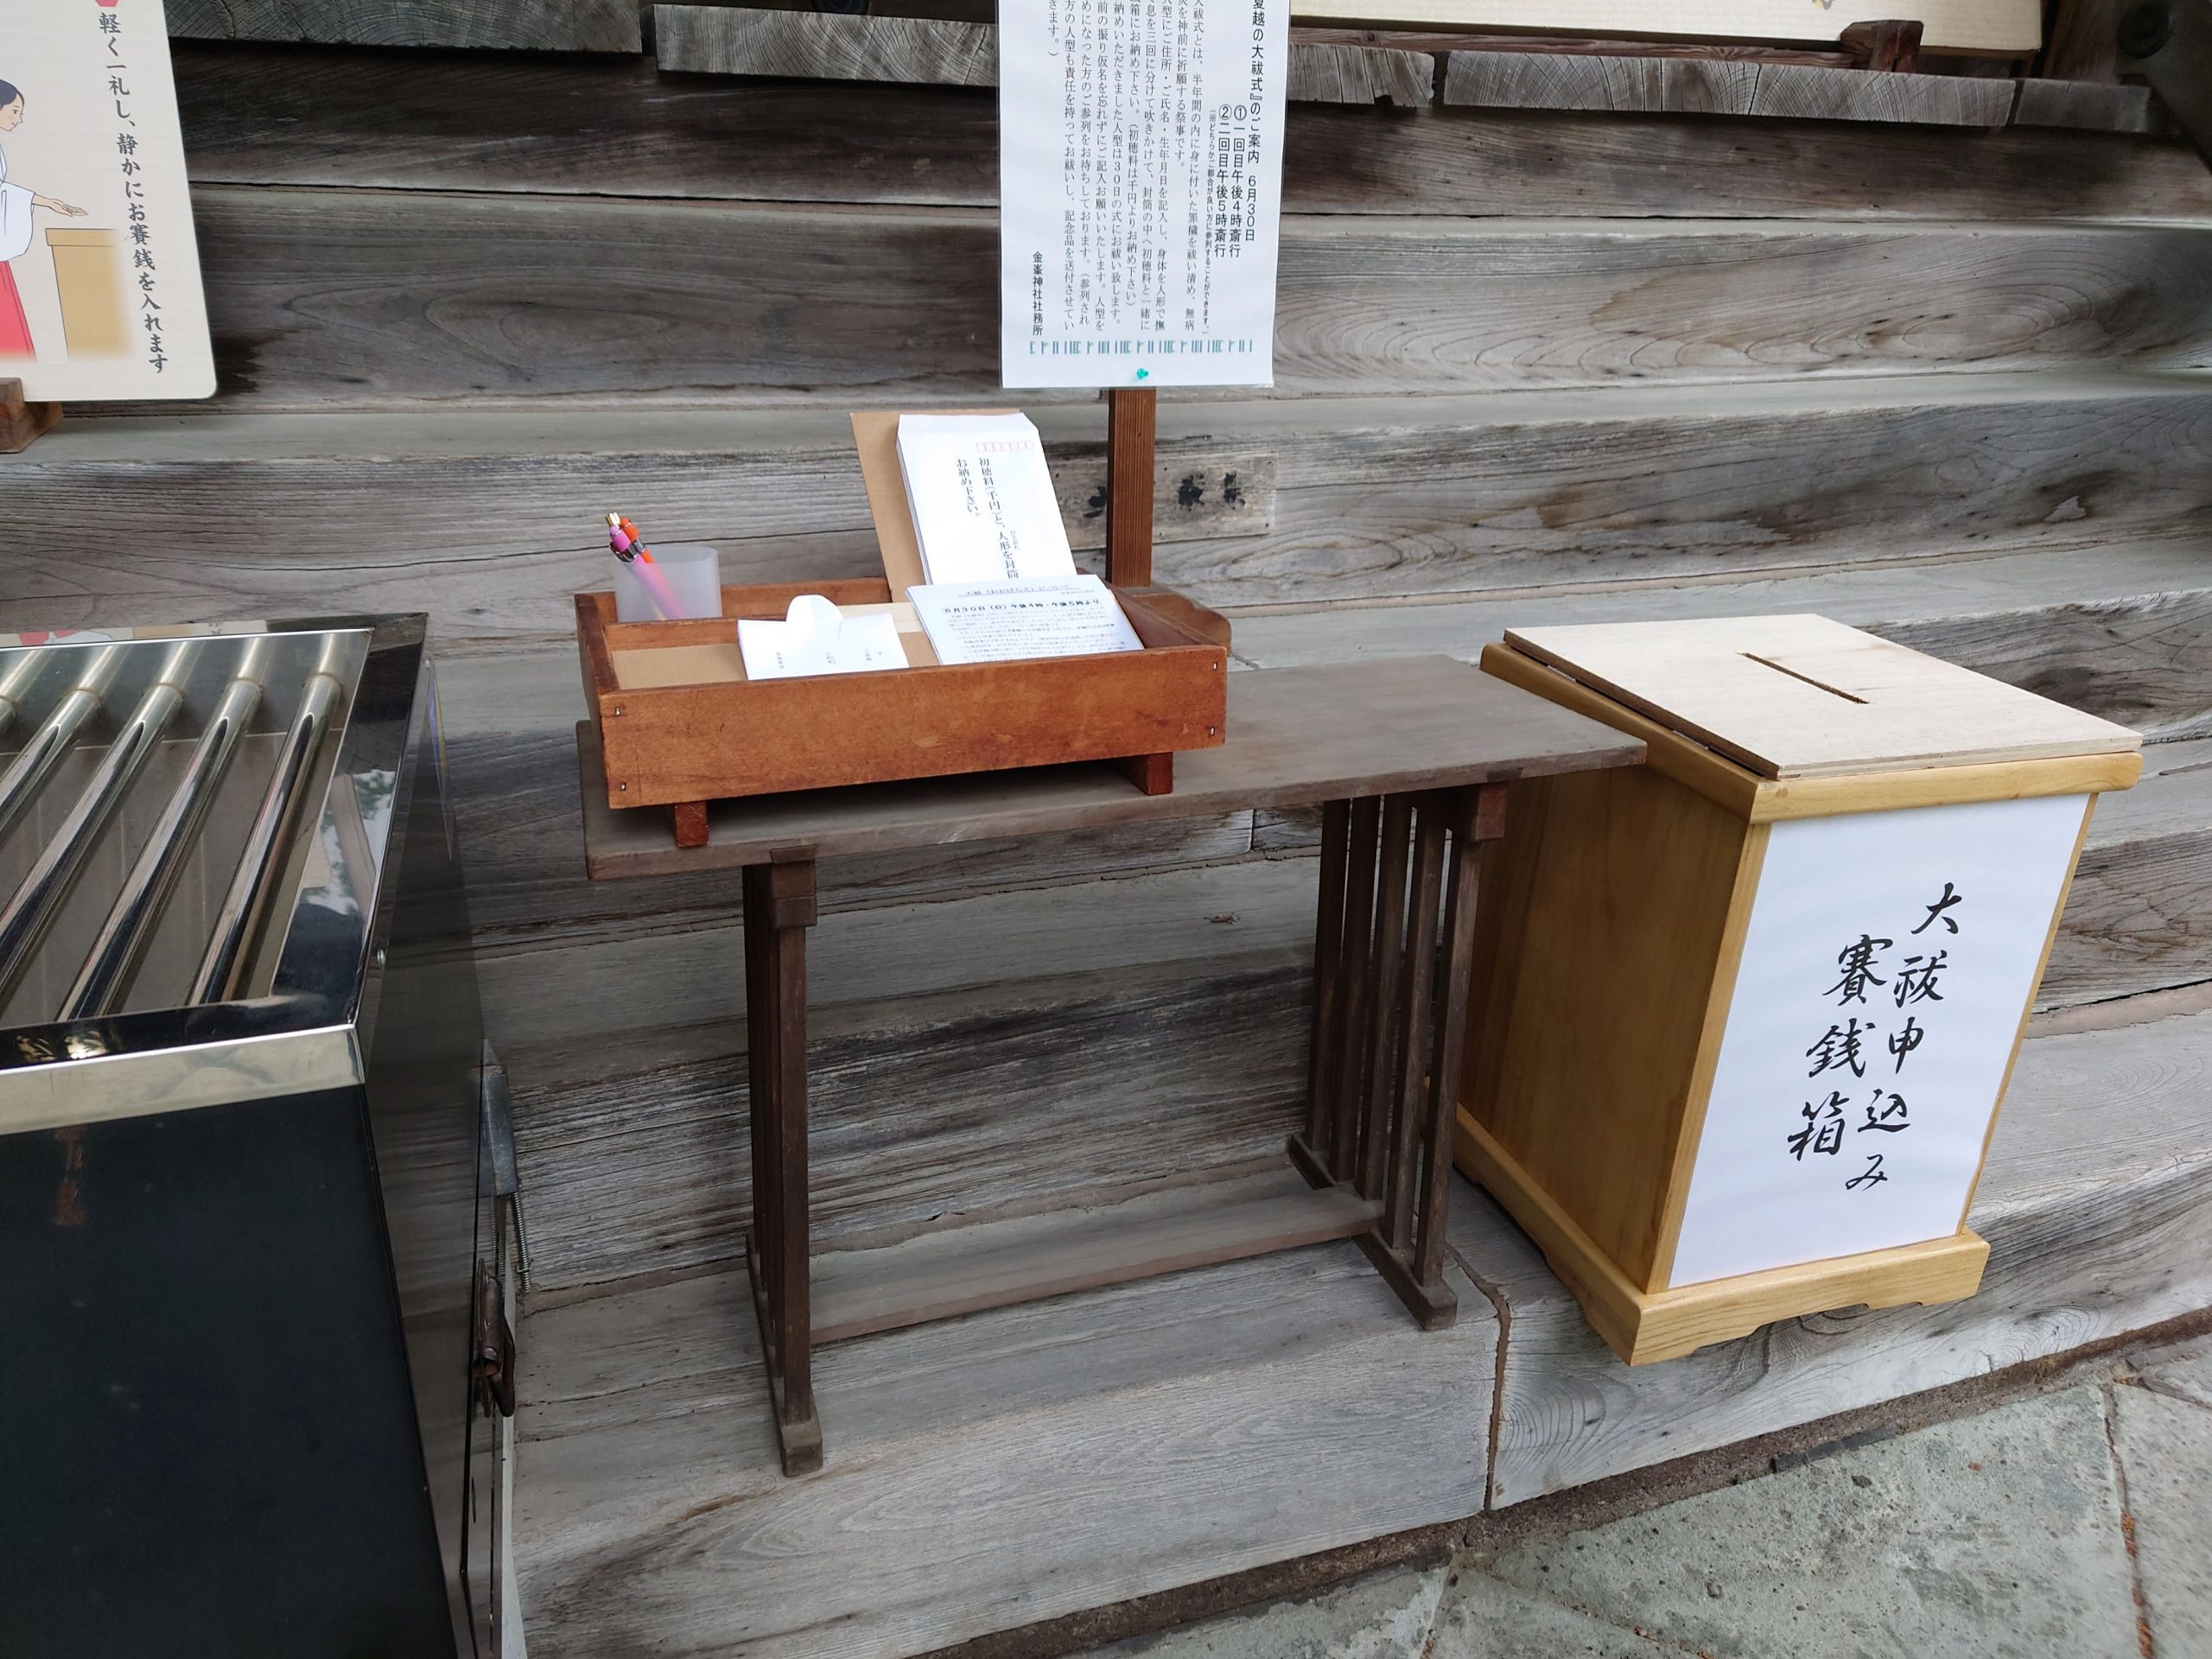 軽く一礼し、静かにお賽銭を入れます
夏越の大祓式』のご案内 6月30日
①一回目午後4時斎行
②二回目午後5時斎行
(※どちらかご都合が良い方に参列することができます。)
大祓式とは、半年間の内に身に付いた罪穢を祓い清め、無病
災を神前に祈願する祭事です。
人型にご住所・ご氏名・生年月日を記入し、身体を人形で撫
息を三回に分けて吹きかけて、封筒の中へ初穂料と一緒に
箱にお納め下さい。(初穂料は千円よりお納め下さい)
納めいただきました人型は30日の式にお祓い致します。
前の振り仮名を忘れずにご記入お願いいたします。人型を
めになった方のご参列をお待ちしております。(参列され
方の人型も責任を持ってお祓いし、記念品を送付させてい
きます。)
金峯神社社務所
初穂料(千円)と、人形を封筒
お納め下さい。
6月30日(日)午後4時・午後5時より
大祓申込み
賽銭箱